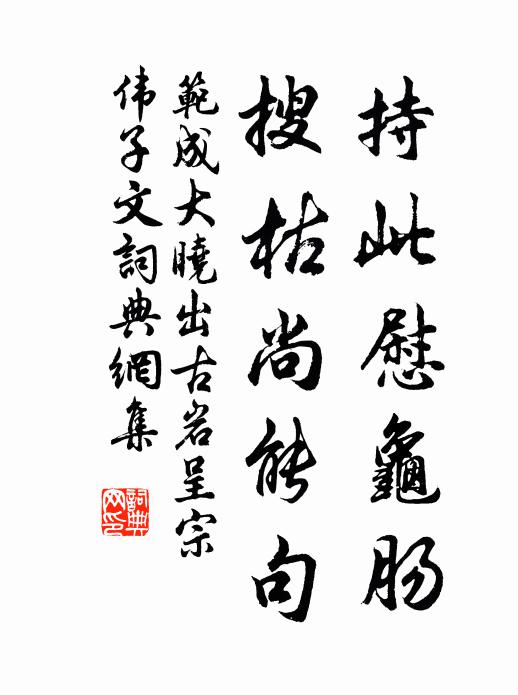 持此慰龜肠
搜枯尚能句
範成大曉出古岩呈宗
伟子文詞典網集
詞典網印